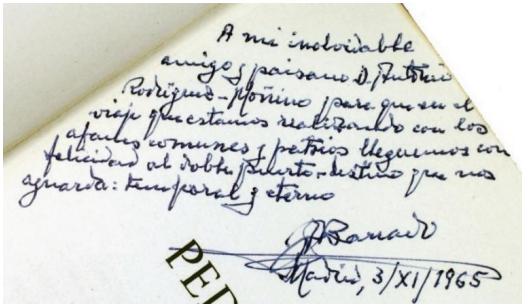 A mi inolvidable
amigo y paisano D. Antonio
Rodríguez-Moñino, para que en el
viaje que estamos realizando con los
afanes comunes y patrios lleguemos con
felicidad al doble puerto-destino que nos
aguarda: temporal y eterno
Barrado
Madrid, 3/XI/1965
PED